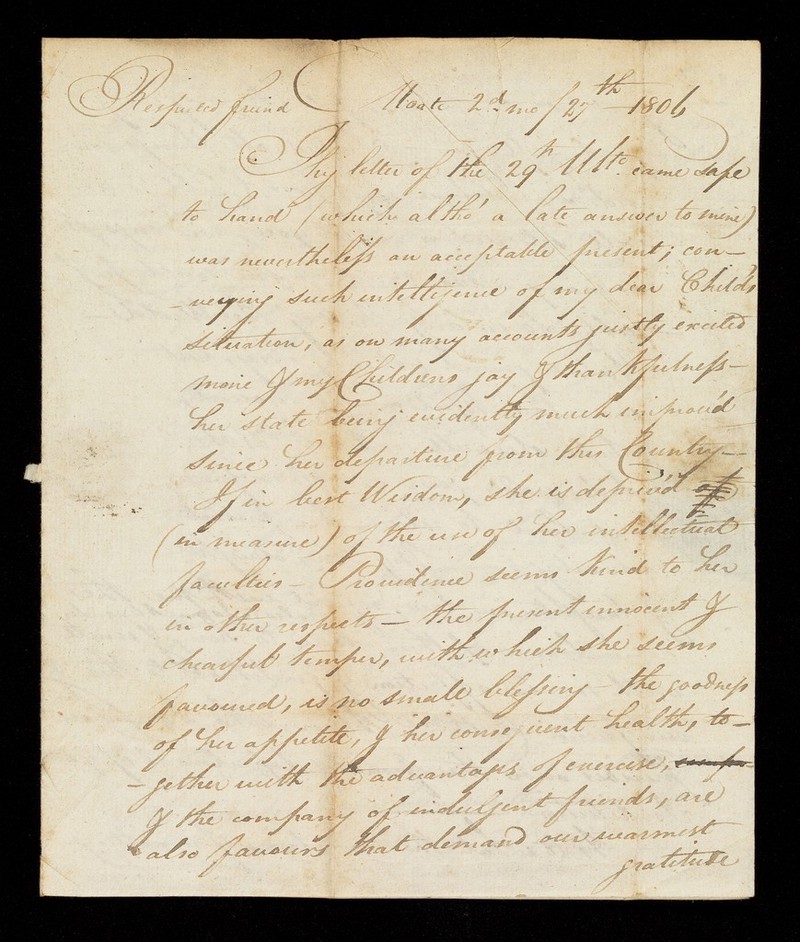 Respected friend Moate 2d. mo / 27th 1806
Thy letter of the 29th Ulto. came safe
to hand (which altho' a late answer to mine)
was nevertheless an acceptable present; con-
-veying such intelligence of my dear Child's
situation, as on many accounts justly excited
mine & my Childrens joy & thankfulness-
her state being evidently much improv'd
since her departure from this Country-
If in best Wisdom, she is depriv'd of
(in measure) of the use of her intellectual
faculties - Providence seems kind to her
in other respects - the present innocent &
chearful temper, with which she seems
favoured, is no small blessing - the goodness
of her appetite, & her consequent health, to-
-gether with the advantages of exercise,
& the company of indulgent friends, are
also favours that demand our warmest
gratitude